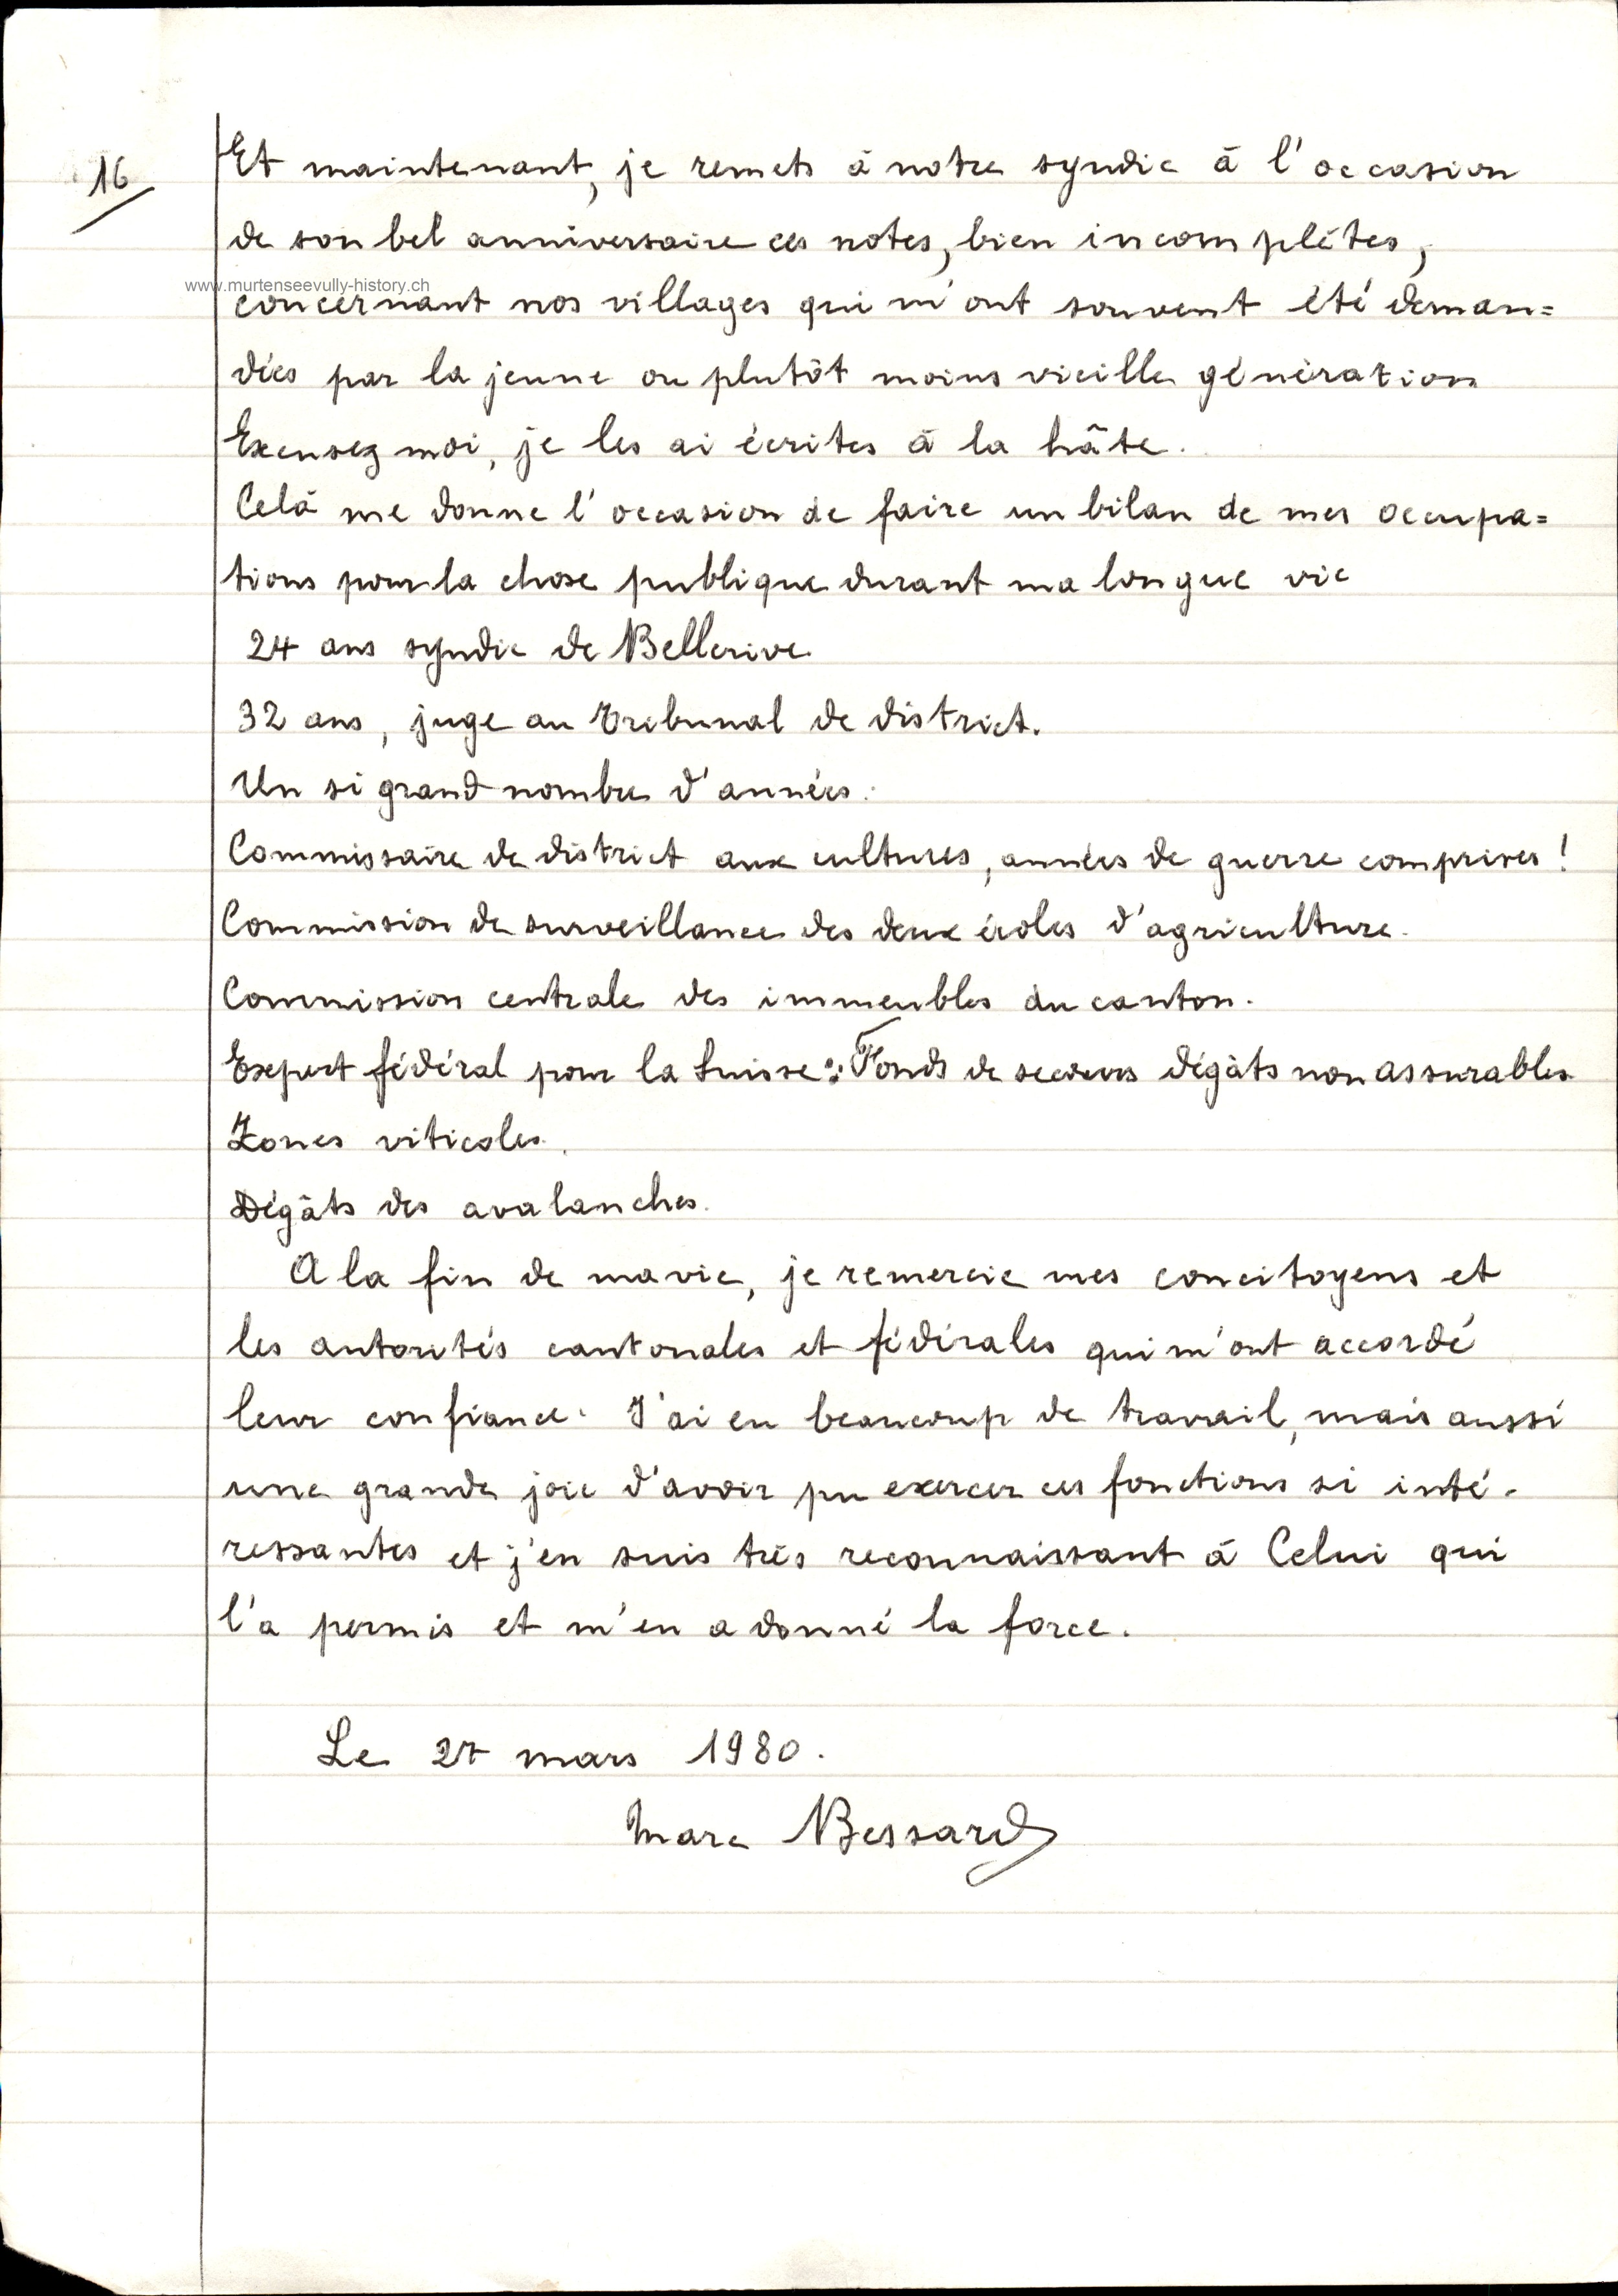 16
Et maintenant, je remets à notre syndic à l'occasion
de son bel anniversaire ces notes, bien incomplètes,
www.murtenseevully-history.ch
concernant nos villages qui m'ont souvent été deman=
dées par la jeune ou plutôt moins vieille génération
Excusez moi, je les ai écrites à la hâte.
Celà me donne l'occasion de faire un bilan de mes occupa=
tions pour la chose publique durant ma longue vie
24 ans syndic de Bellerive
32 ans, juge au Tribunal de district.
Un si grand nombre d'années.
Commissaire de district aux cultures, années de guerre comprises !
Commission de surveillance des deux écoles d'agriculture.
Commission centrale des immeubles du canton.
Expert fédéral pour la Suisse : Fonds de secours dégâts non assurables
Zones viticoles.
Dégâts des avalanches.
A la fin de ma vie, je remercie mes concitoyens et
les autorités cantonales et fédérales qui m'ont accordé
leur confiance. J'ai eu beaucoup de travail, mais aussi
une grande joie d'avoir pu exercer ces fonctions si inté-
ressantes et j'en suis très reconnaissant à Celui qui
l'a permis et m'en a donné la force.
Le 27 mars 1980.
Marc Bessard